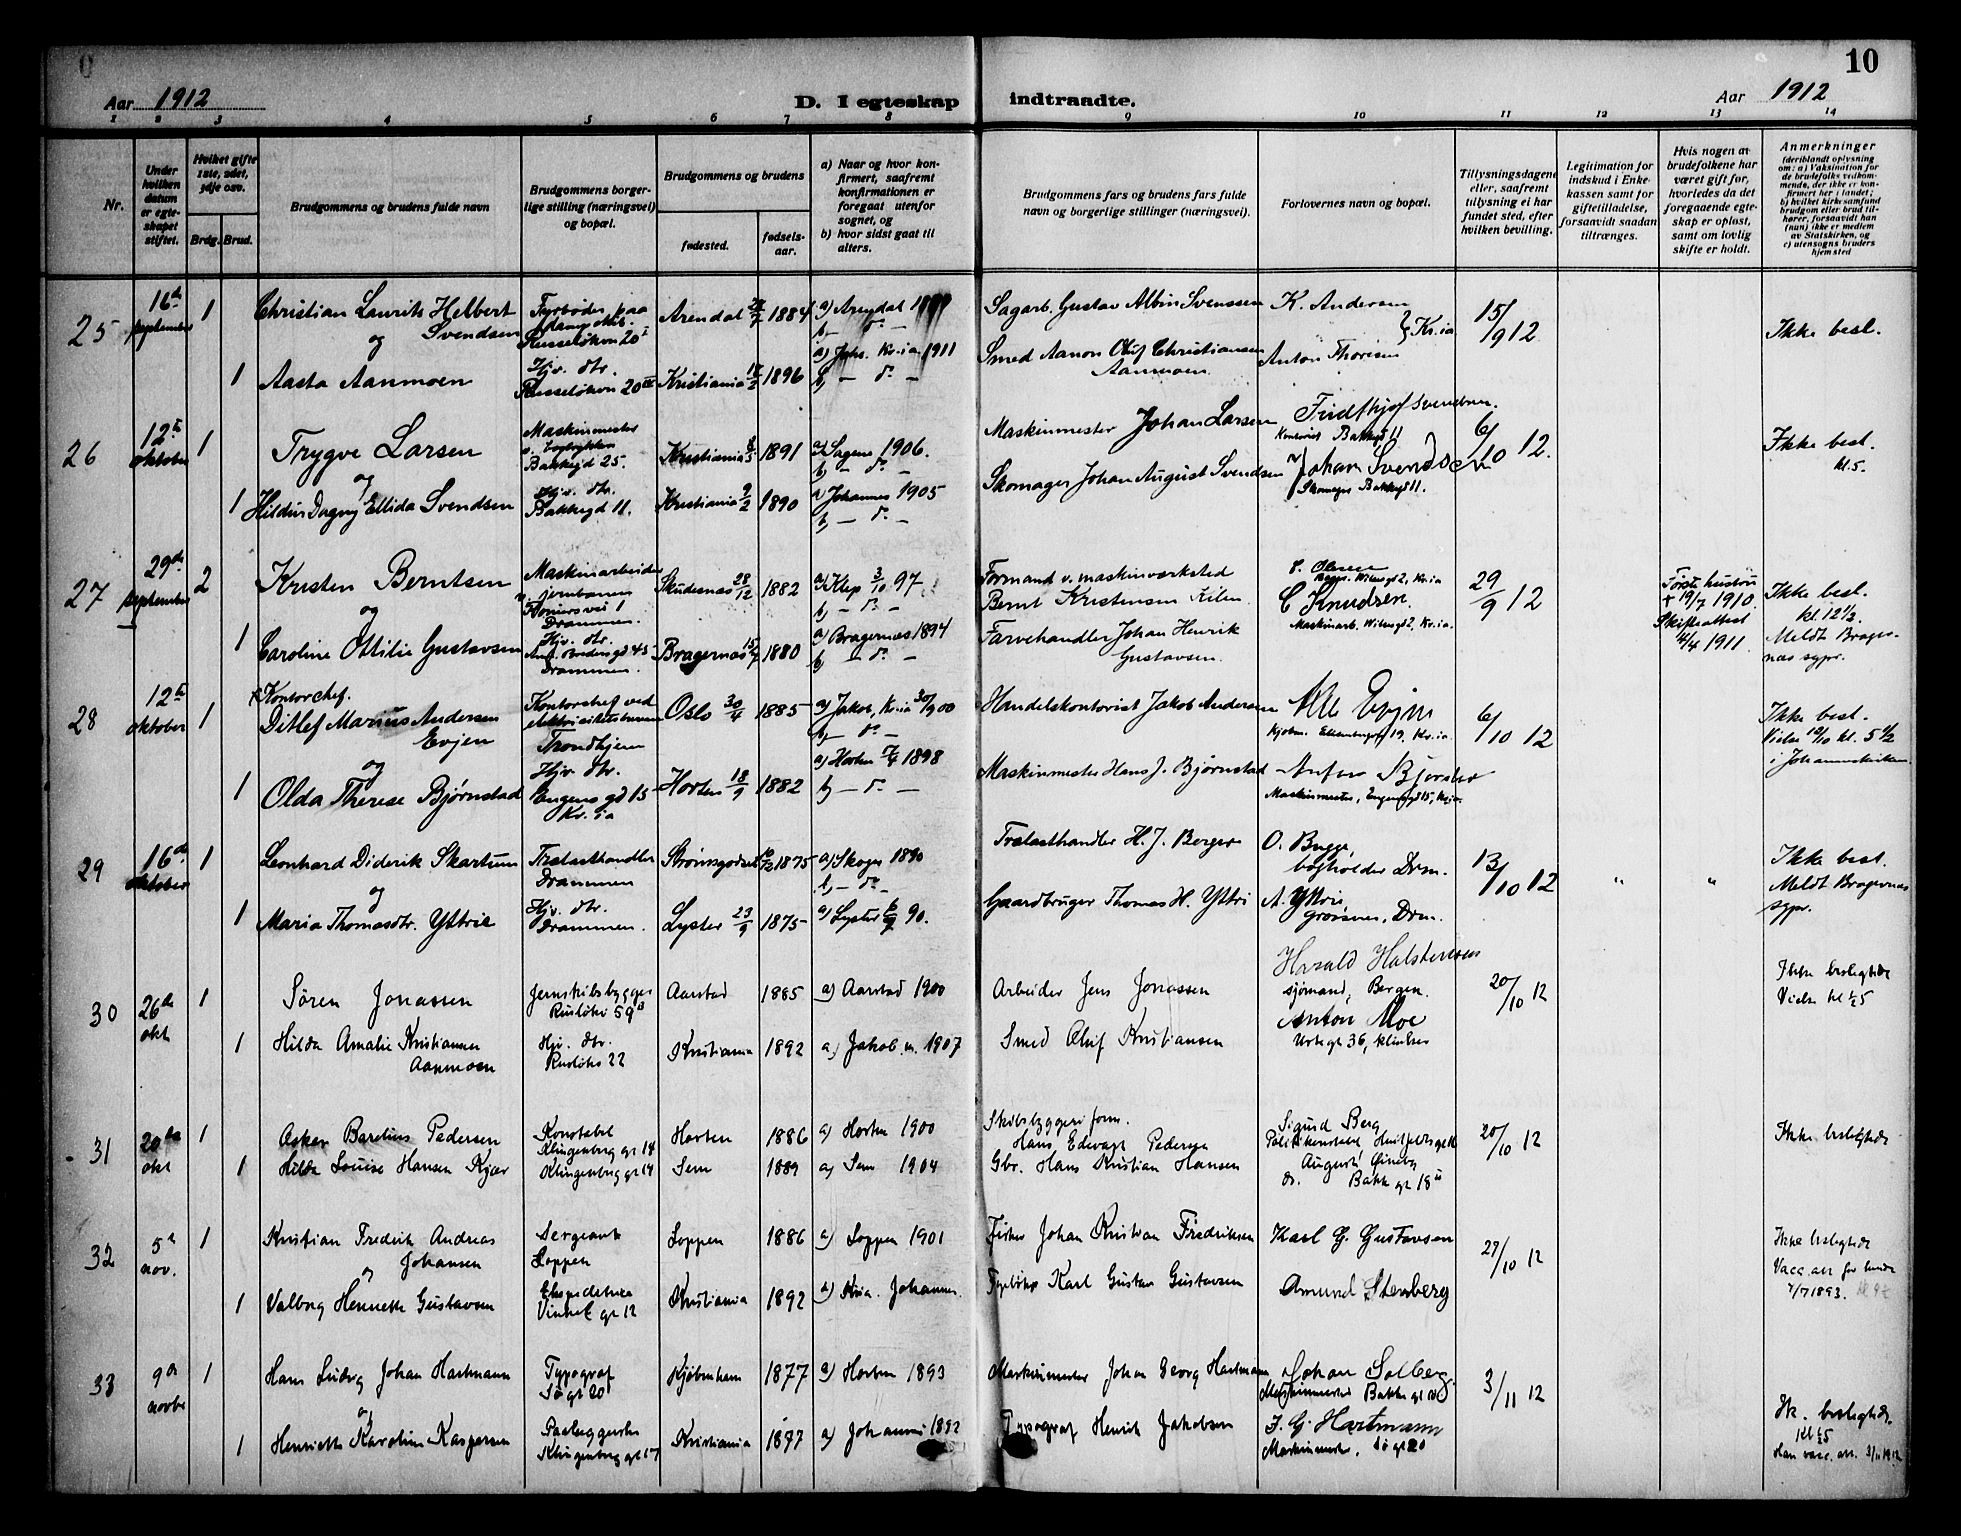 10
Aar 1912
D. I egteskap indtraadte.
Aar 1912
1 2 3 4 5 6 7 8 9 10 11 12 13 14
Nr.
Under hvilken datum er egteskapet stiftet.
Hvilket gifte 1ste, 2det, 3dje osv.
Brdg. Brud.
Brudgommens og brudens fulde navn
Brudgommens borgerlige stilling (næringsvei) og bopæl.
Brudgommens og brudens
fødested.
fødselsaar.
a) Naar og hvor konfirmert, saafremt konfirmationen er foregaat utenfor sognet, og
b) hvor sidst gaat til alters.
Brudgommens fars og brudens fars fulde navn og borgerlige stillinger (næringsvei).
Forlovernes navn og bopæl.
Tillysningsdagene eller, saafremt tillysning ei har fundet sted, efter hvilken bevilling.
Legitimation for indskud i Enkekassen samt for giftetilladelse, forsaavidt saadan tiltrænges.
Hvis nogen av brudefolkene har været gift før, hvorledes da det foregaaende egteskap er opløst, samt om lovlig skifte er holdt.
Anmerkninger
(deriblandt oplysning om: a) Vaksination for de brudefolks vedkommende, der ikke er konfirmert her i landet;
b) hvilket kirkesamfund brudgom eller brud tilhører, forsaavidt han (hun) ikke er medlem av Statskirken, og
c) utensogns bruders hjemsted
25 16de september 1 Christian Laurits Helbert Svendsen Fyrbøter paa Arendal 1884 a) Arendal
og
Russeløkvn 20
Sagarb. Gustav Albin Svenssen K. Andersen 15/9 12 Ikke besl.
1 Aasta Aanmoen Hjv. dtr. Russeløkvn 20 Kristiania 1896 a) Johs. Kr.ia 1911
Smed Aanon Oluf Christiansen Aanmoen Anton Thoresen } Kr.ia
26 12te oktober 1 Trygve Larsen Maskinmester Bakkegd 25. Kristiania 1891 a) Sagene 1906.
og
Maskinmester Johan Larsen Fridthjof Svendsen Kontorist Bakkegd 11 6/10 12. Ikke besl. kl. 5.
1 Hildur Dagny Ellida Svendsen Hjv. dtr. Bakkegd 11. Kristiania 9/2 1890 a) Johannes 1905
Skomager Johan August Svendsen Johan Svendsen Skomager Bakkegd 11.
27 29de september 2 Kristen Berntsen Maskinarbeider v. jernbanen Drammen. Skudesnes 28/12 1882 a) Klep 3/10 97
og
Formand v. maskinverksted Bernt Kristensen C Knudsen. Maskinarb. Wibesgd 2, Kr.ia. 29/9 12
Første hustru + 19/7 1910. Skifteattest 14/4 1911
Ikke besl. kl 12½. Meldt Bragernas sypr.
1 Caroline Ottilie Gustavsen Hjv. dtr. Drammen Bragernas 15/7 1880 a) Bragernas 1894
Farvehandler Johan Henrik Gustavsen.
28 12te oktober 1 Kontorchef. Ditlef Marius Andersen Evjen Kontorchef ved elektricitetsbanen Trondhjem Oslo 30/4 1885 a) Jakob, Kr.ia 30/9 00
og
Handelskontorist Jakob Andersen Evjen 19, Kr.ia. 6/10 12 Ikke besl. Vielse 12/10 kl. 5½ i Johanneskirken
1 Olda Therese Bjørnstad Hjv. dtr. Eugens gd 15 Kr.ia Horten 18/9 1882 a) Horten 1898
Maskinmester Hans J. Bjørnstad Maskinmester, Eugensgd 15, Kr.ia.
29 16de oktober 1 Leonhard Diderik Skartum Trelasthandler Drammen Strømsgodset 1875 a) Skoger 1890
og
Trælasthandler H. J. Berger O. Bugge, bogholder Drm. 13/10 12 " " Ikke besl. Meldt Bragernas sypr.
1 Maria Thomasdtr. Yttrie Hjv. dtr. Drammen. Lyster 23/9 1875 a) Lyster 90.
Gaardbruger Thomas H. Yttri A. Yttri, Drm.
30 26de okt 1 Søren Jonassen Jernskibsbygger Rusløkv 59 Aarstad 1885 a) Aarstad 1900
Arbeider Jens Jonassen Harald Halstensen sjømand, Bergen. 20/10 12 Ikke beslegtede Vielse kl ½5
1 Hilda Amalie Kristiansen Aanmoen Hjv. dtr. Rusløkv 22 Kristiania 1892 a) Jakob. k. 1907
Smed Oluf Kristiansen Anton Moe Urtegt 36,
31 20de okt 1 Asker Barelius Pedersen Konstabel Klingenberg gt 14 Horten 1886 a) Horten 1900
Skibsbyggeri form. Hans Edvart Pedersen Sigurd Berg 20/10 12 Ikke beslegtede
1 Hilda Louise Hansen Kjær Klingenberg gt 14 Sem 1889 a) Sem 1904
Gbr. Hans Kristian Hansen August do. Bakk gt 18
32 5te nov. 1 Kristian Fredrik Andreas Johansen Sergeant Loppen Loppen 1886 a) Loppen 1901
og
Fisker Johan Kristian Fredriksen Karl G. Gustavsen 27/10 12 Ikke beslegtede Vacc. att for brude 7/7 1893.
1 Valborg Henriette Gustavsen Ekspeditrice Vinkel gt 12 Kristiania 1892 a) Kria. Johannes.
Fyrbøter Karl Gustav Gustavsen Amund Stenberg
33 9de novbr 1 Hans Ludvig Johan Hartmann Typograf Sø gt 20 Kjøbenhavn 1877 a) Horten 1893
og
Maskinmester Johan Georg Hartmann Johan Solberg. Maskinmester Bakke gt 3/11 12 Ik. beslegtede. Kl ½5 Han vacc. att. 3/11 1912
1 Henriette Karoline Kaspersen Paalæggerske Klingenberg gt 17 Kristiania 1877 a) Johannes 1892
Typograf Henrik Jakobsen J. G. Hartmann Maskinmest. Sø gt 20